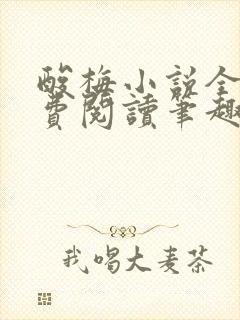 酸梅小说全
费阅讀筆趣
我喝大麦茶